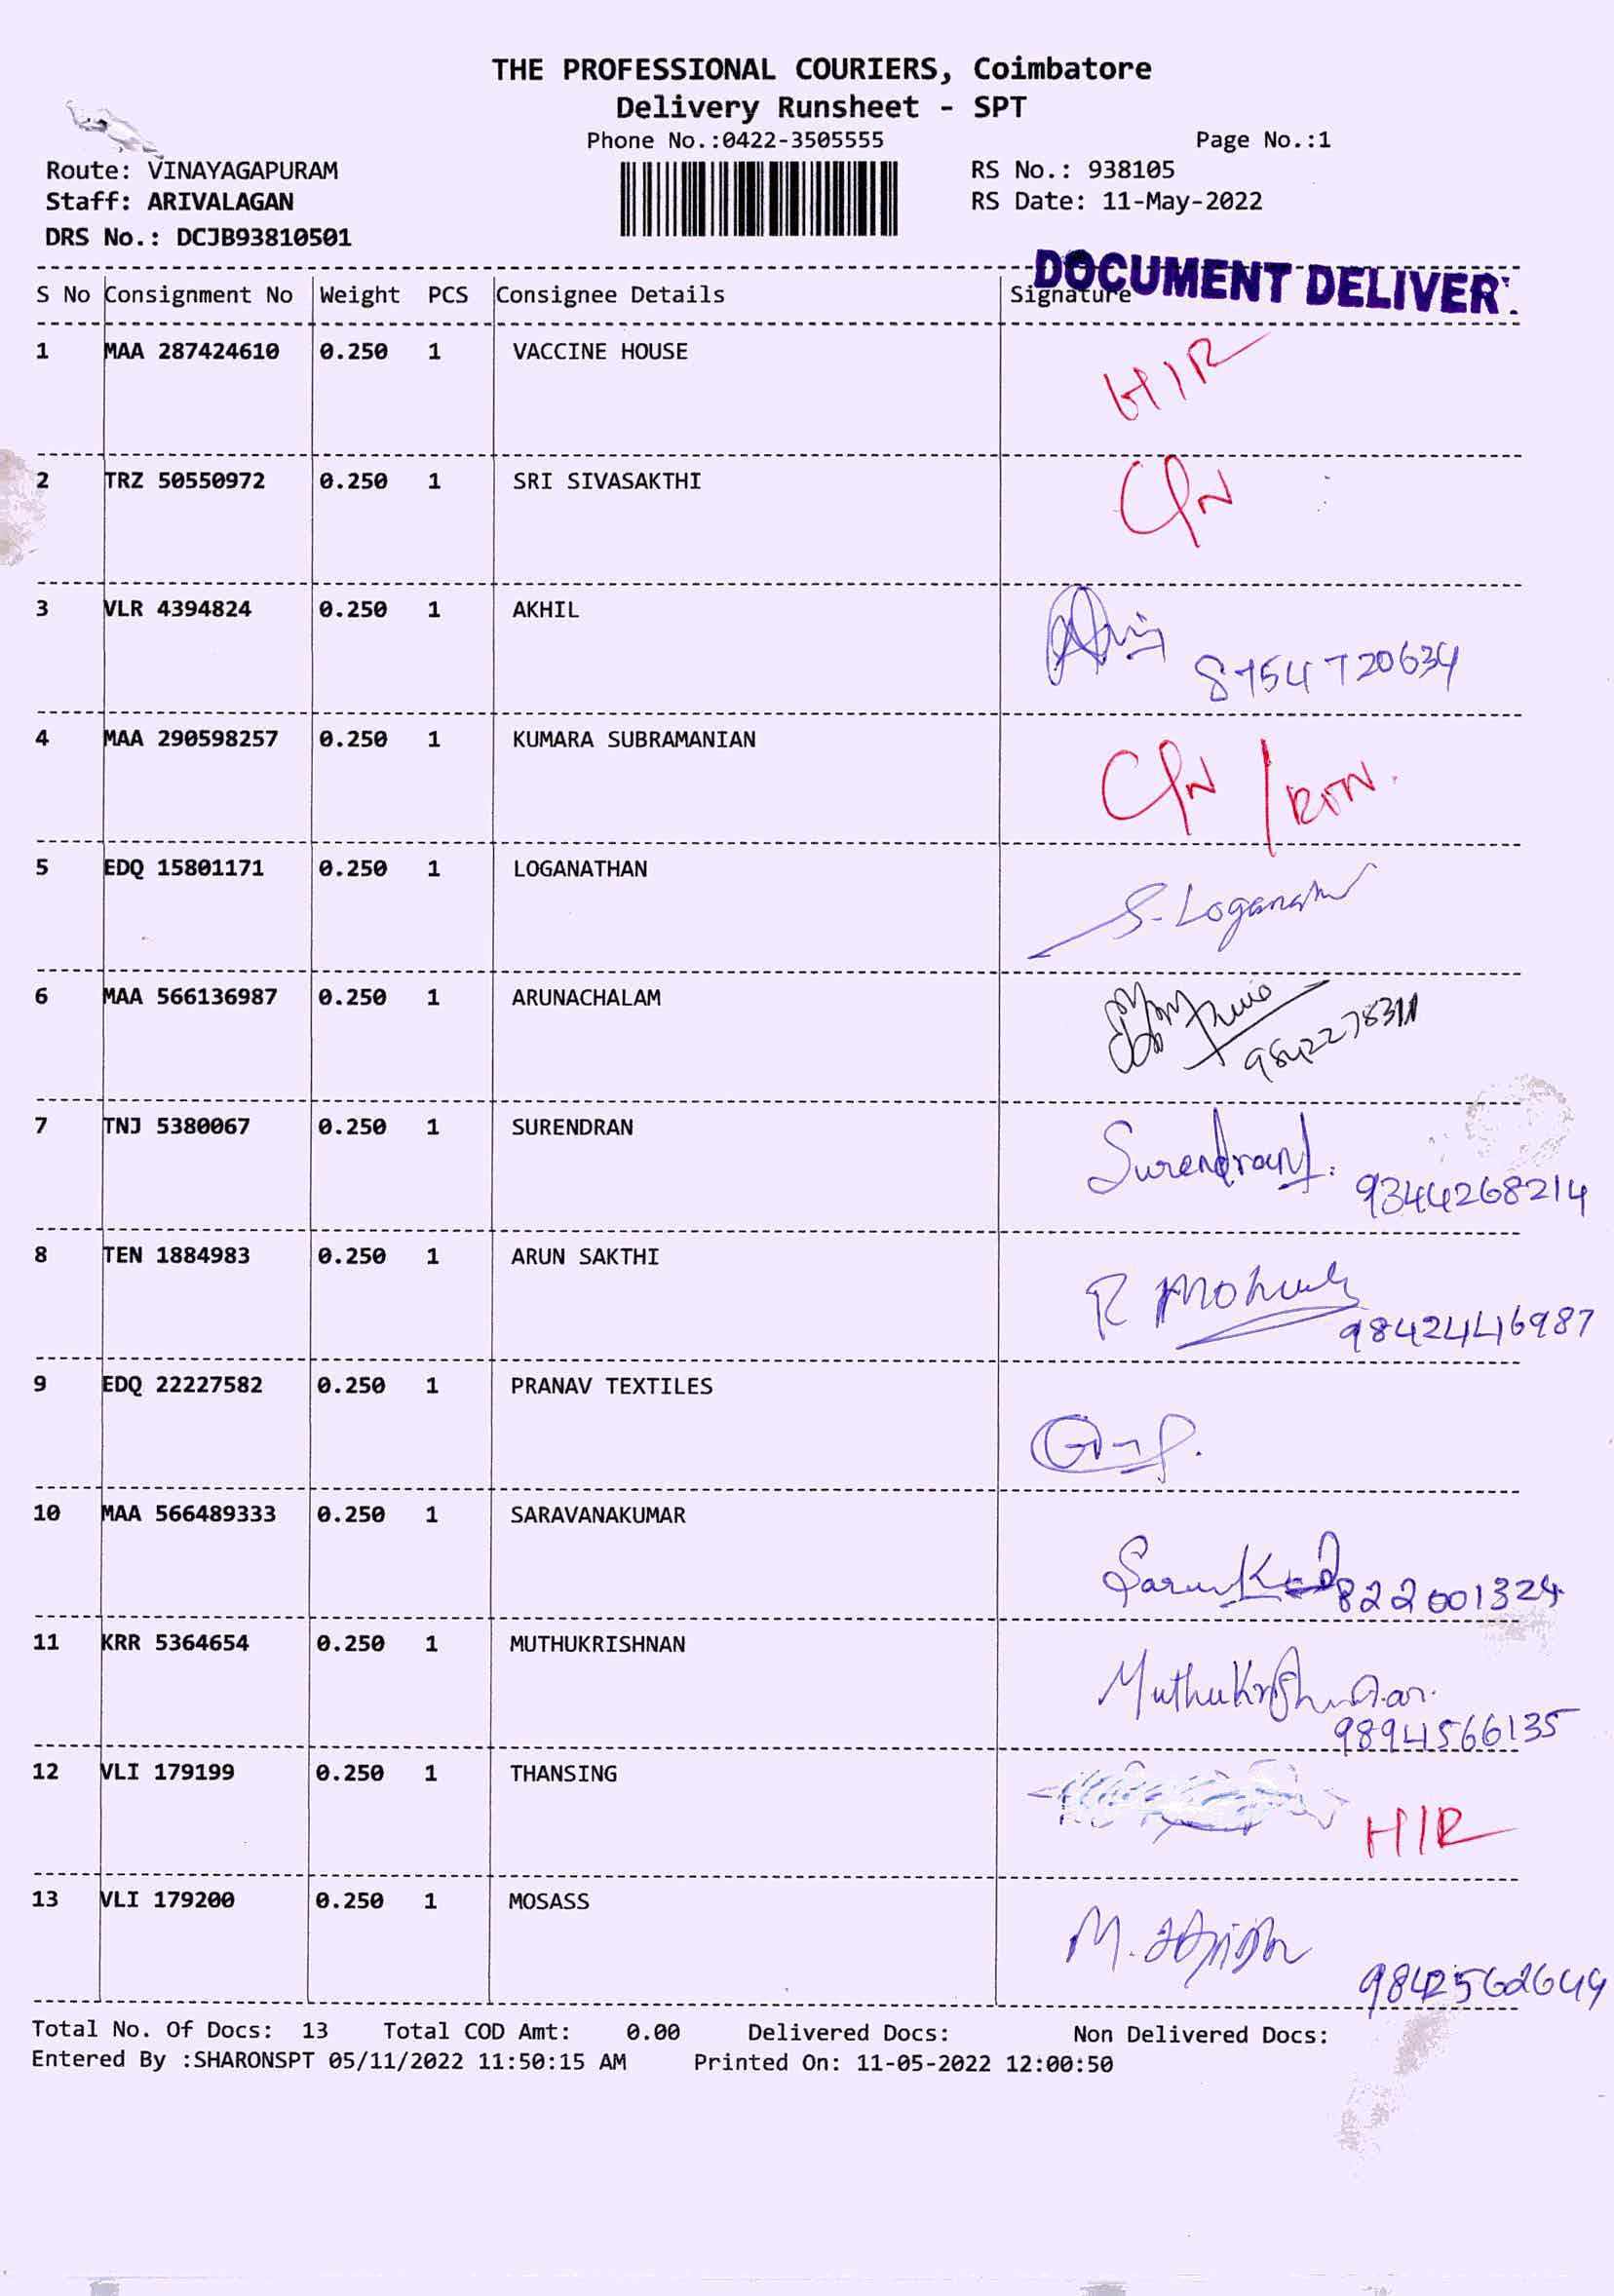 THE PROFESSIONAL COURIERS, Coimbatore
Delivery Runsheet - SPT
Phone No.:0422-3505555 Page No.:1
Route: VINAYAGAPURAM RS No.: 938105
Staff: ARIVALAGAN RS Date: 11-May-2022
DRS No.: DCJB93810501
DOCUMENT DELIVER
S No Consignment No Weight PCS Consignee Details Signature
1 MAA 287424610 0.250 1 VACCINE HOUSE
H/R
2 TRZ 50550972 0.250 1 SRI SIVASAKTHI
3 VLR 4394824 0.250 1 AKHIL
8754720634
4 MAA 290598257 0.250 1 KUMARA SUBRAMANIAN
5 EDQ 15801171 0.250 1 LOGANATHAN
S. Loganathan
6 MAA 566136987 0.250 1 ARUNACHALAM
7 TNJ 5380067 0.250 1 SURENDRAN
Surendran
9344268214
8 TEN 1884983 0.250 1 ARUN SAKTHI
9842446987
9 EDQ 22227582 0.250 1 PRANAV TEXTILES
10 MAA 566489333 0.250 1 SARAVANAKUMAR
11 KRR 5364654 0.250 1 MUTHUKRISHNAN
Muthukrishnan.
9894566135
12 VLI 179199 0.250 1 THANSING
H/R
13 VLI 179200 0.250 1 MOSASS
9842562649
Total No. Of Docs: 13 Total COD Amt: 0.00 Delivered Docs: Non Delivered Docs:
Entered By :SHARONSPT 05/11/2022 11:50:15 AM Printed On: 11-05-2022 12:00:50